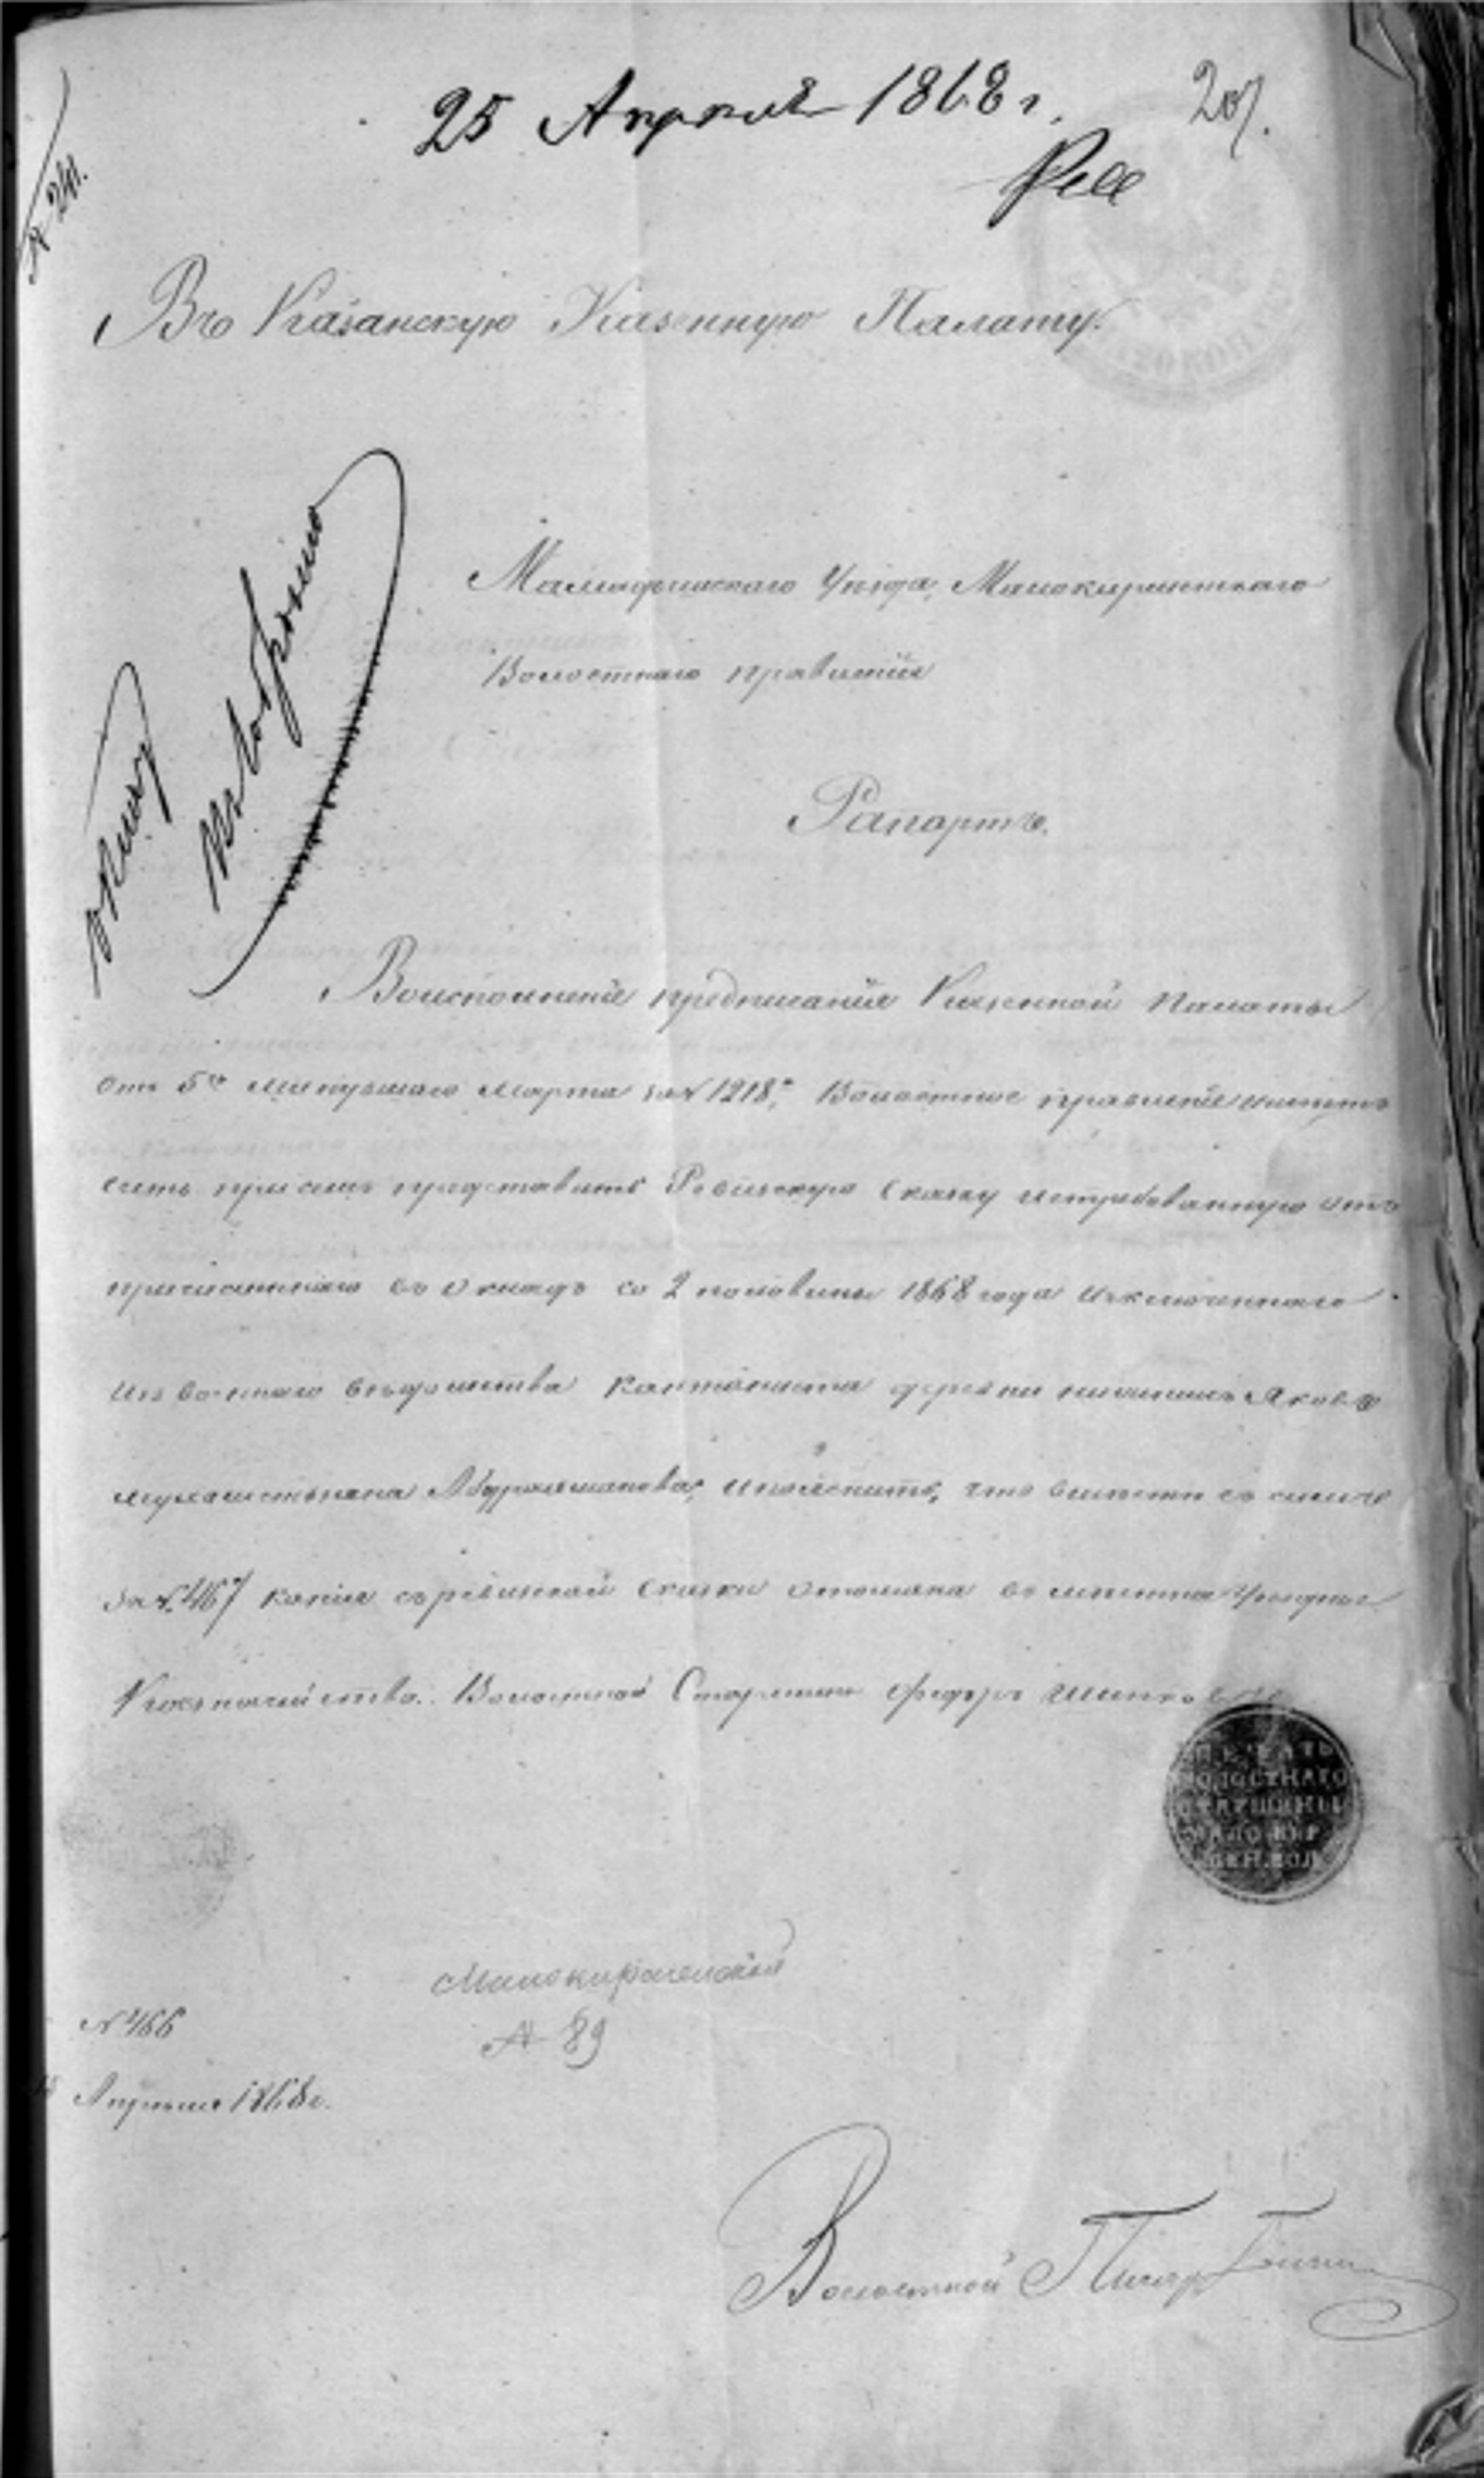 25 Апреля 1868 г.
207.
Рев
№ 241.
Въ Казанскую Казенную Палату.
Мамадышскаго Уѣзда, Малокирменскаго
Волостнаго правленія
Рапортъ.
Воисполненіе предписанія Казенной Палаты
отъ 5го минувшаго марта за № 1218, Волостное правленіе имѣетъ
честь при семъ представить Ревизскую Сказку истребованную отъ
причисленнаго въ окладъ со 2 половины 1868 года исключеннаго
изъ военнаго вѣдомства кантониста деревни
Абдрахманова, и пояснить, что вмѣстѣ съ симъ
за № 467 копія съ ревизской сказки отослана въ мѣстна Уѣздное
Казначейство. Волостной Старшина Федоръ
ПЕЧАТЬ
ВОЛОСТНАГО
СТАРШИНЫ
МАЛО-КИР
МЕН. ВОЛ
Малокирменской
№ 89
№ 466
Апрѣля 1868 г.
Волостной Писарь